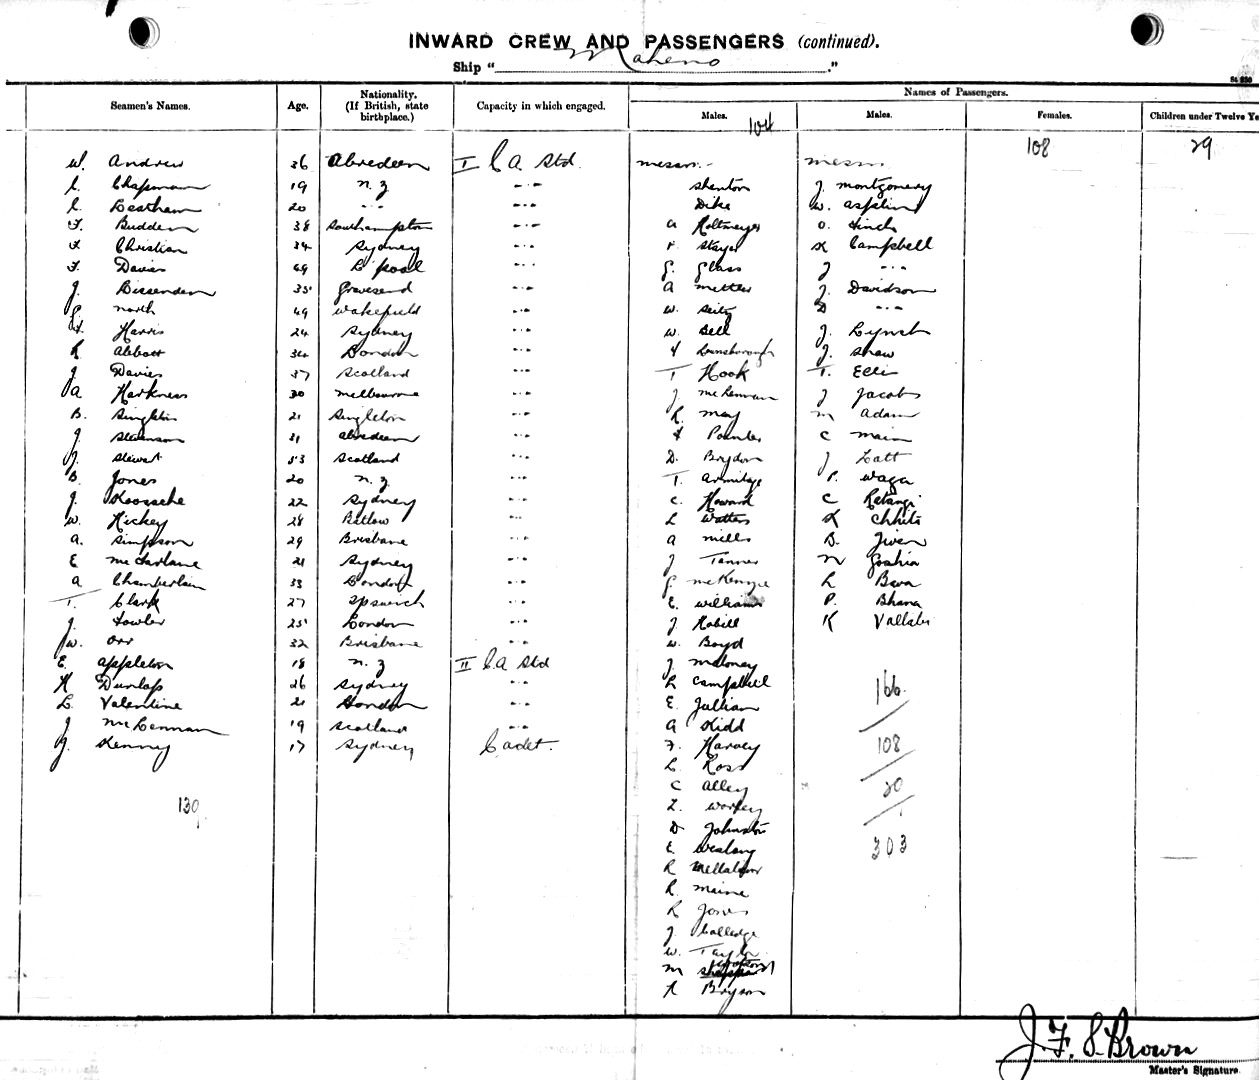 INWARD CREW AND PASSENGERS (continued).
Ship "Maheno."
Seamen's Names. Age. Nationality. (If British, state birthplace.) Capacity in which engaged. Names of Passengers.
Males. Males. Females. Children under Twelve Ye
104 108 29
W. Andrew 36 Aberdeen I C.A. Std. Messrs. Messrs
C. Chapman 19 N.Z -"- Shenton J. Montgomery
C. 20 -"- -"- Dike W. Asplin
F. Budden 38 Southampton -"- A O. Hinch
F. Christian 34 Sydney -"- F. Stayer K Campbell
F. Davies 49 L'pool -"- G. Glass J -"-
J. Bissenden 35 Gravesend -"- A J. Davidson
P. North 49 Wakefield -"- W. Seitz D -"-
H. Harris 24 Sydney -"- W. Bell J. Lynch
R Abbott 34 London -"- J. Shaw
J Davies 37 Scotland -"- T Hook T. Ellis
A Harkness 30 Melbourne -"- J. McLennan J Jacobs
B. Singleton 21 Singleton -"- R. May M Adam
J. Stevenson 31 Aberdeen -"- Pounder C Main
J. Stewart 53 Scotland -"- D. Brydon J Latt
B. Jones 20 N.Z -"- T. Armitage P. Waga
J. 22 Sydney -"- C. Howard C
W. Hickey 28 Batlow -"- L Watters K Chhita
A. Simpson 29 Brisbane -"- A Mills B. Jivan
E McFarlane 21 Sydney -"- J Tanner N
A Chamberlain 33 London -"- G. McKenzie L Bava
T. Clark 27 Ipswich -"- E. Williams P. Bhana
J. Fowler 25 London -"- J Kabill K Vallabh
W. Orr 32 Brisbane -"- W. Boyd
E. Appleton 18 N.Z II C.A Std J. Maloney
R Dunlop 26 Sydney -"- L Campbell 166.
L. Valentine 21 London -"- E. Jullian
J McLennan 19 Scotland -"- A Kidd
J. Kenney 17 Sydney Cadet. F. Harvey 108
L. Ross
C Alley 20
130 L.
D Johnston
E. 303
R
R. Maine
R Jones
J.
W. Taylor
M
R Bryson
J. F. S. Brown
Master's Signature.